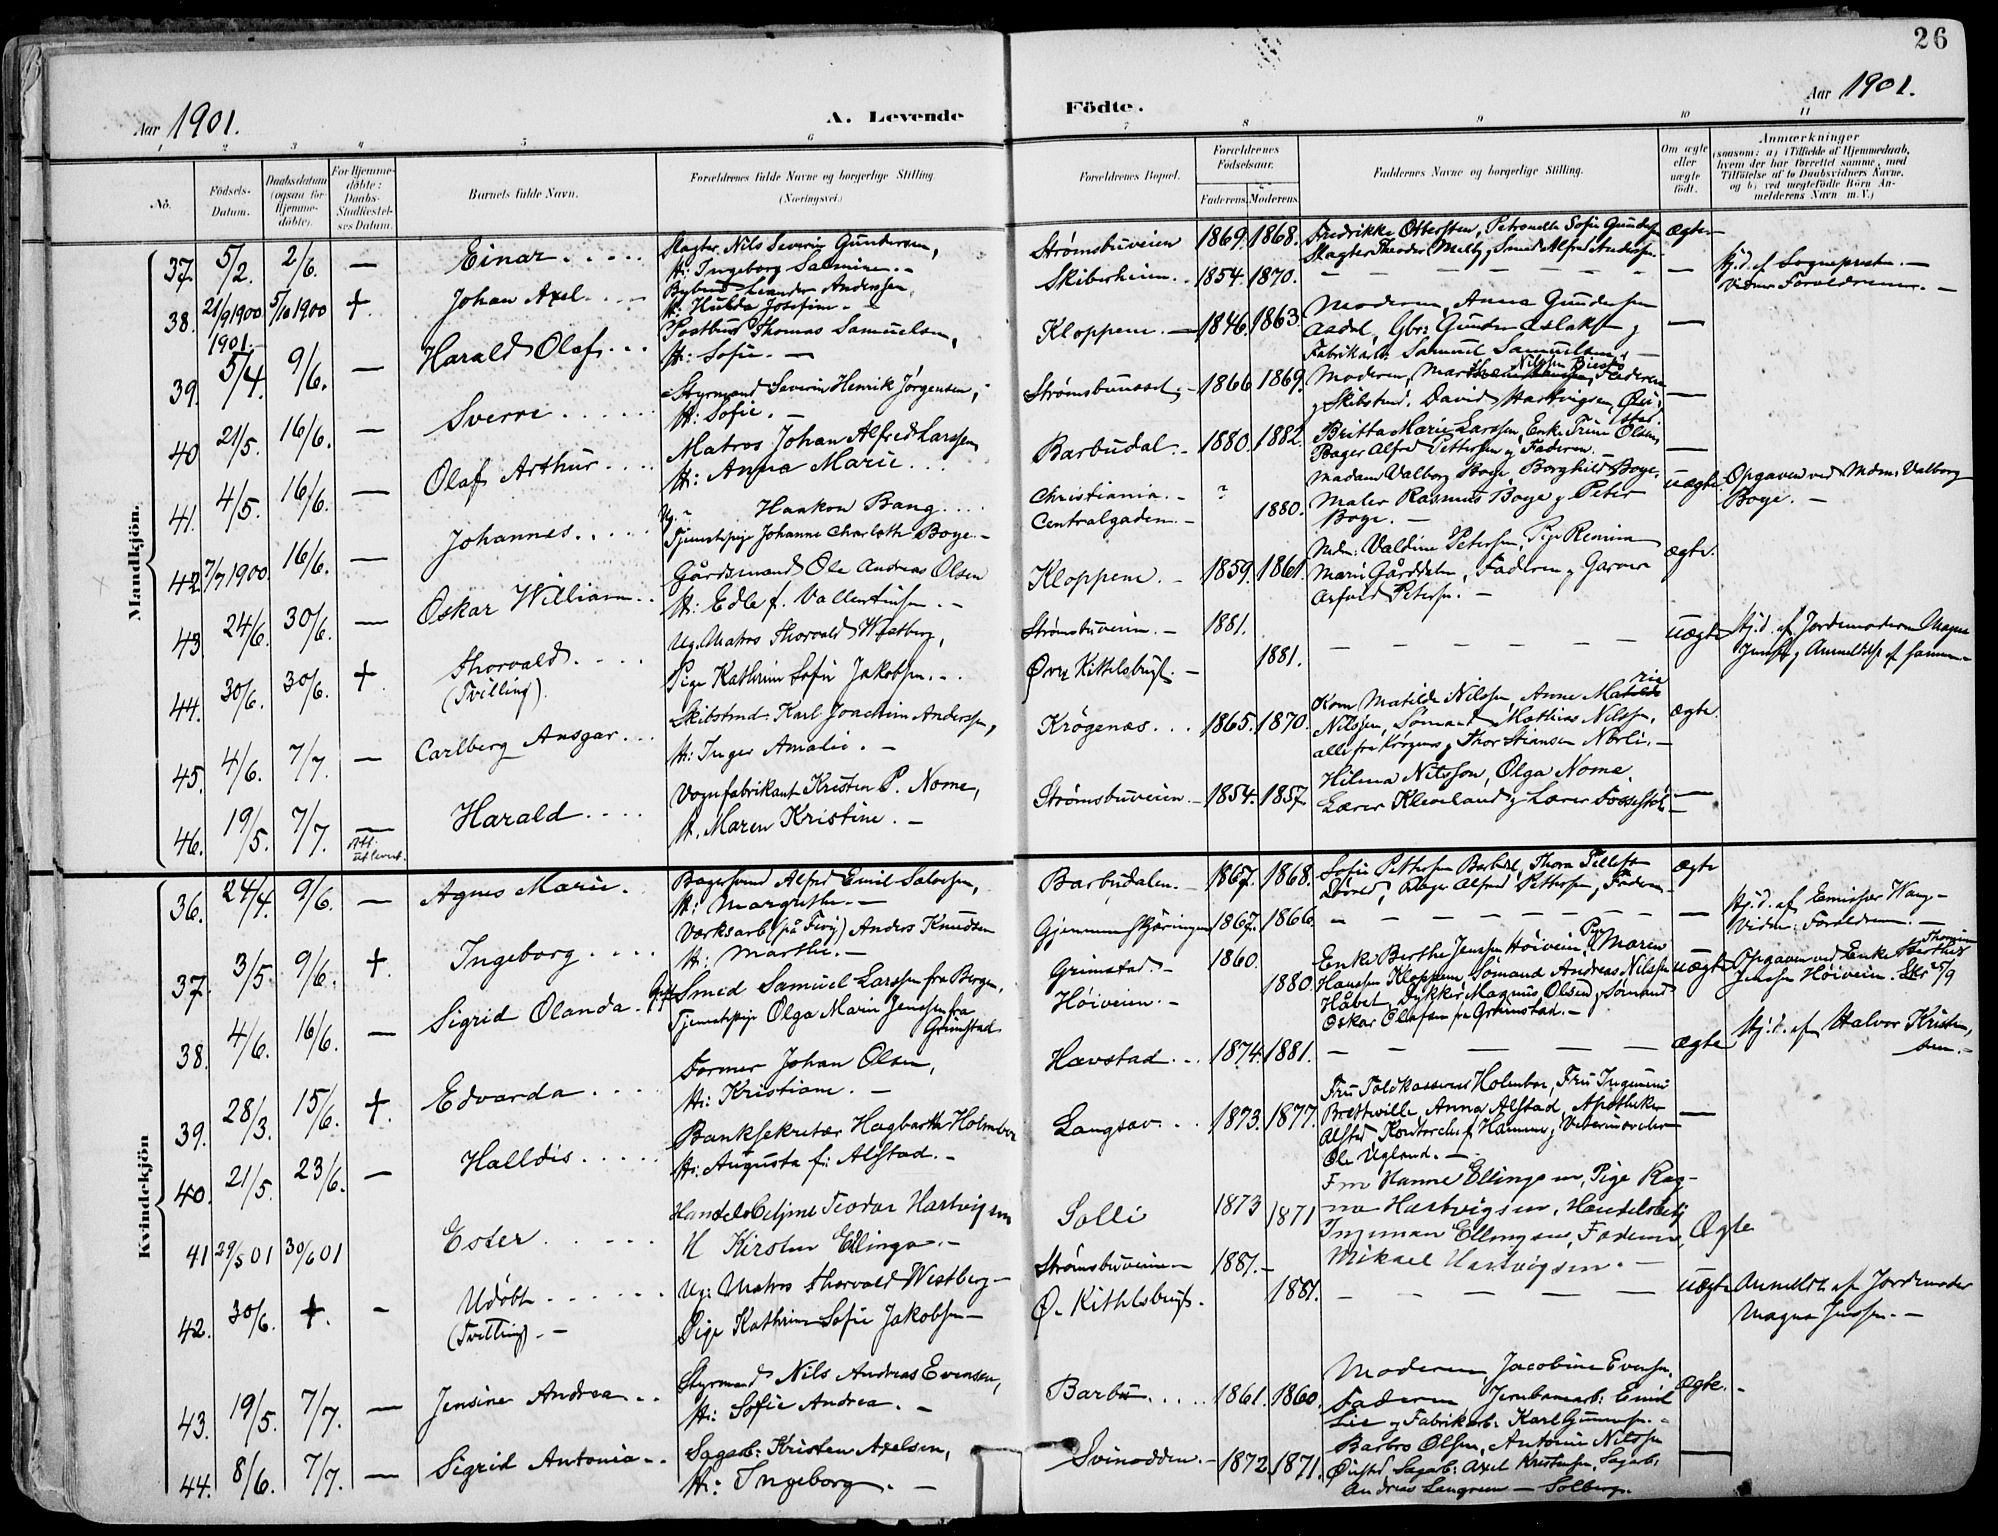 26
Aar 1901. A. Levende Födte. Aar 1901.
1 2 3 4 5 6 7 8 9 10 11
No. Födsels-Datum. Daabsdatum (ogsaa for Hjemmedöbte). For Hjemmedöbte: Daabs-Stadfæstelses Datum. Barnets fulde Navn. Forældrenes fulde Navne og borgerlige Stilling. (Næringsvei.) Forældrenes Bopæl. Forældrenes Födselsaar. Faderens. Moderens. Faddernes Navne og borgerlige Stilling. Om ægte eller uægte födt. Anmærkninger (saasom: a) i Tilfælde af Hjemmedaab, hvem der har forrettet samme, med Tilföielse af to Daabsvidners Navne, og b) ved uægtefödte Börn Anmelderens Navn m.V.)
Mandkjön.
37. 5/2. 2/6. — Einar Slagter Nils Severin Gundersen,
H: Ingeborg Salmine. — Strømsbuveien 1869. 1868. Fredrikke Ottersen, Petronelle Sofie Gundersen
Slagter Theodor Melby, Smed Alfred Andersen. ægte
38. 21/9 1900 5/10 1900 + Johan Axel Bybud Leander Andersen,
H: Hulda Josefine — Skiberheien 1854. 1870. — — — Hj. d. af Sogneprest. —
Vidner Forældrene. —
39. 1901. 5/4. 9/6. — Harald Olaf Postbud Thomas Samuelsen,
H: Sofie. — Kloppene. — 1846. 1863. Moderen, Anna Gundersen
Asdal, Gbr: Gunder Aslaksen og
Fabrikarb: Samuel Samuelsen. —
40 21/5. 16/6. — Sverre Styrmand Severin Henrik Jørgensen,
H: Sofie. — Strømsbuneset. — 1866 1869. Moderen, Faderen
og Skibstmd. David Hartvigsen,
41. 4/5. 16/6. — Olaf Arthur Matros Johan Alfred Larssen
H: Anna Marie Barbudal. — 1880. 1882. Britta Marie Larssen, Enke Trine Olsen,
Bager Alfred Pettersen og Faderen. —
42. 7/7 1900. 16/6. — Johannes Ug. Haakon Bang
Tjenestepige Johanne Charlotte Boye — Christiania. — ?
Centralgaden. — 1880. Madam Valborg Boye, Borghild Boye,
Maler Rasmus Boye og Peter
Boye. — uægte Opgaven ved Mdm: Valborg
Boye. —
43. 24/6. 30/6. — Oskar William Gårdsmand Ole Andreas Olsen
H: Edle f. Vallentinsen. — Kloppene. — 1859. 1861. Mdm: Valdine Petersen, Pige Remine
Marie Gårddalen, Faderen og Garver
Arfved Petersen. — ægte.
44. 30/6. 30/6. + Thorvald
(Tvilling). Ug. Matros Thorvald Westberg,
Pige Kathrine Sofie Jakobsen. — Strømsbuveien. — 1881.
Øvre Kittelsbugt. — 1881. — — — uægte Hj. d. af Jordemoderen Magna
Jensen og Anmeldt af samme —
45. 4/6. 7/7. — Carlberg Ansgar Skibstmd. Karl Joachim Andersen,
H: Inger Amalie. — Krögenæs 1865. 1870. Kone Matilde Nilssen, Anne Marie
Nilssen, Sømand Mathias Nilssen,
alle fra Krögenes og Thor Stiansen Nørli. — ægte.
46. 19/5. 7/7. — Att. utlevert. Harald Vognfabrikant Kristen P. Nome,
H. Maren Kristine. — Strømsbuveien. — 1854. 1857. Hilma Nilsson, Olga Nome,
Lærer Kleveland og Lærer —
Kvindekjön
36. 24/4. 9/6. — Agnes Marie. Bagersvend Alfred Emil Salvesen,
H: Margrethe. — Barbudalen. — 1867. 1868. Sofie Pettersen Barbudal, Thora
Bager Alfred Pettersen, Faderen — ægte
37. 3/5. 9/6. + Ingeborg Værksarb. (på Færø) Anders Knudsen
H: Marthe. — Gjennemskjæringen 1867. 1866. — — — Hj. d. af Emissær
Vidner: Forældrene. —
38. 4/6. 16/6. — Sigrid Olanda Smed Samuel Larssen fra Bergen,
Tjenestepige Olga Marie Jenssen fra
Grimstad Grimstad — 1860.
Høiveien. — 1880. Enke Berthe Jenssen Høiveien, Pige Maren
Hanssen Kloppene, Sømand Andreas Nilssen
Håbet, Dykker Magnus Olsen og Sømand
Oskar Olafsen fra Grimstad. — uægte Opgaven ved Enke Berthe
Jenssen Høiveien.
39. 28/3. 15/6. +. Edvarda Former Johan Olsen,
H: Kristiane. — Havstad 1874. 1881. — — — ægte Hj. d. af Halvor Kristen-
sen. —
40. 21/5. 23/6. — Halldis Banksekretær Hagbarth Holmboe
H: Augusta f: Alstad. — Langsæv 1873. 1877. Fru Toldkasserer Holmboe, Fru Ingeniør
Brettville, Anna Alstad, Apotheker
Alstad, Kontorchef Hammer og Veterinær
Ole Ugland. —
41 29/5 01 30/6 01 Ester Handelsbetjent Teodor Hartvigsen
H Kirsten Ellinga. — Solli 1873 1871 Fru Hanne Ellingsen, Pige Rag-
na Hartvigsen, Handelsbetj
Ingman Ellingsen, Faderen,
Mikael Hartvigsen. — Ægte
42. 30/6. +. — Udöbt
(Tvilling). — Ug: Matros Thorvald Westberg —
Pige Kathrine Sofie Jakobsen — Strømsbuveien — 1881. —
Ø. Kittelsbugt. 1881. — — — uægte Anmeldt af Jordemoder
Magna Jenssen. —
43. 19/5. 7/7. — Jensine Andrea Styrmand Nils Andreas Evensen,
H: Sofie Andrea. — Barbu 1861. 1860. Moderen, Jacobine Evensen.
Faderen Jernbanearb: Emil
Lie og Fabrikarb: Karl Gunnersen. — ægte. —
44. 8/6. 7/7. — Sigrid Antonia Sagarb: Kristen Axelsen,
H: Ingeborg. — Svinodden. — 1872. 1871. Barbro Olsen, Antonie Nilssen
Sagarb: Axel Kristensen, Sagarb:
Andreas Langreen — Solberg. —